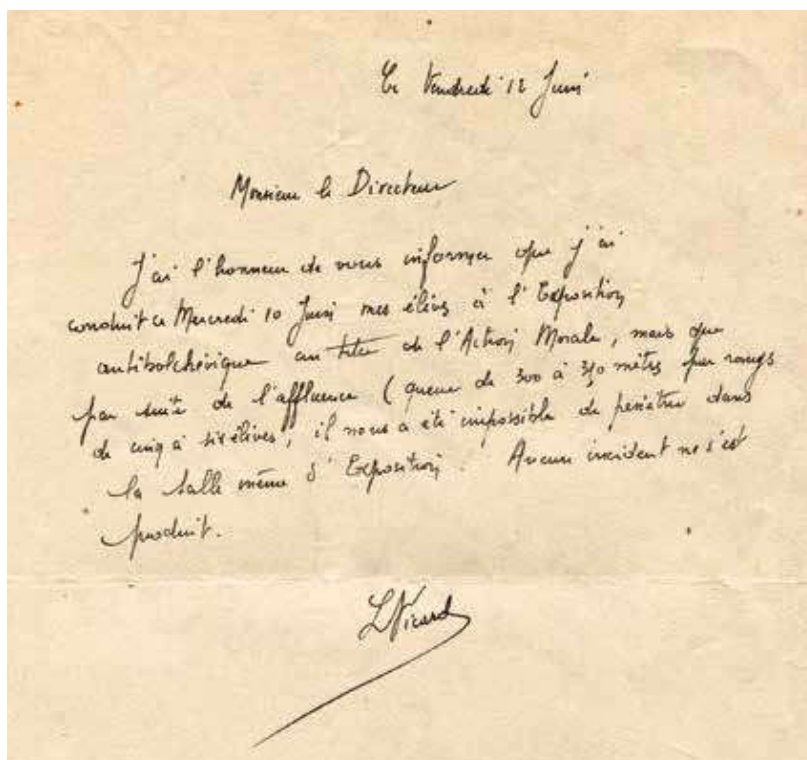 Le Vendredi 12 Juin
Monsieur le Directeur
J'ai l'honneur de vous informer que j'ai
conduit ce Mercredi 10 Juin mes élèves à l'Exposition
antibolchévique au titre de l'Action Morale, mais que
par suite de l'affluence (queue de 300 à 350 mètres par rangs
de cinq à six élèves, il nous a été impossible de pénétrer dans
la salle même d'Exposition. Aucun incident ne s'est
produit.